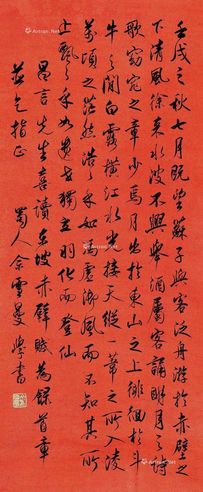 壬戌之秋七月既望蘇子與客泛舟游於赤壁之
下清風徐來水波不興舉酒屬客誦明月之詩
歌窈窕之章少焉月出於東山之上徘徊於斗
牛之間白露橫江水光接天縱一葦之所入凌
萬頃之茫然浩浩乎如馮虛御風而不知其所
止飄飄乎如遺世獨立羽化而登仙
昌言先生喜讀東坡赤壁賦為錄首章
並乞指正 蜀人余雪曼學書